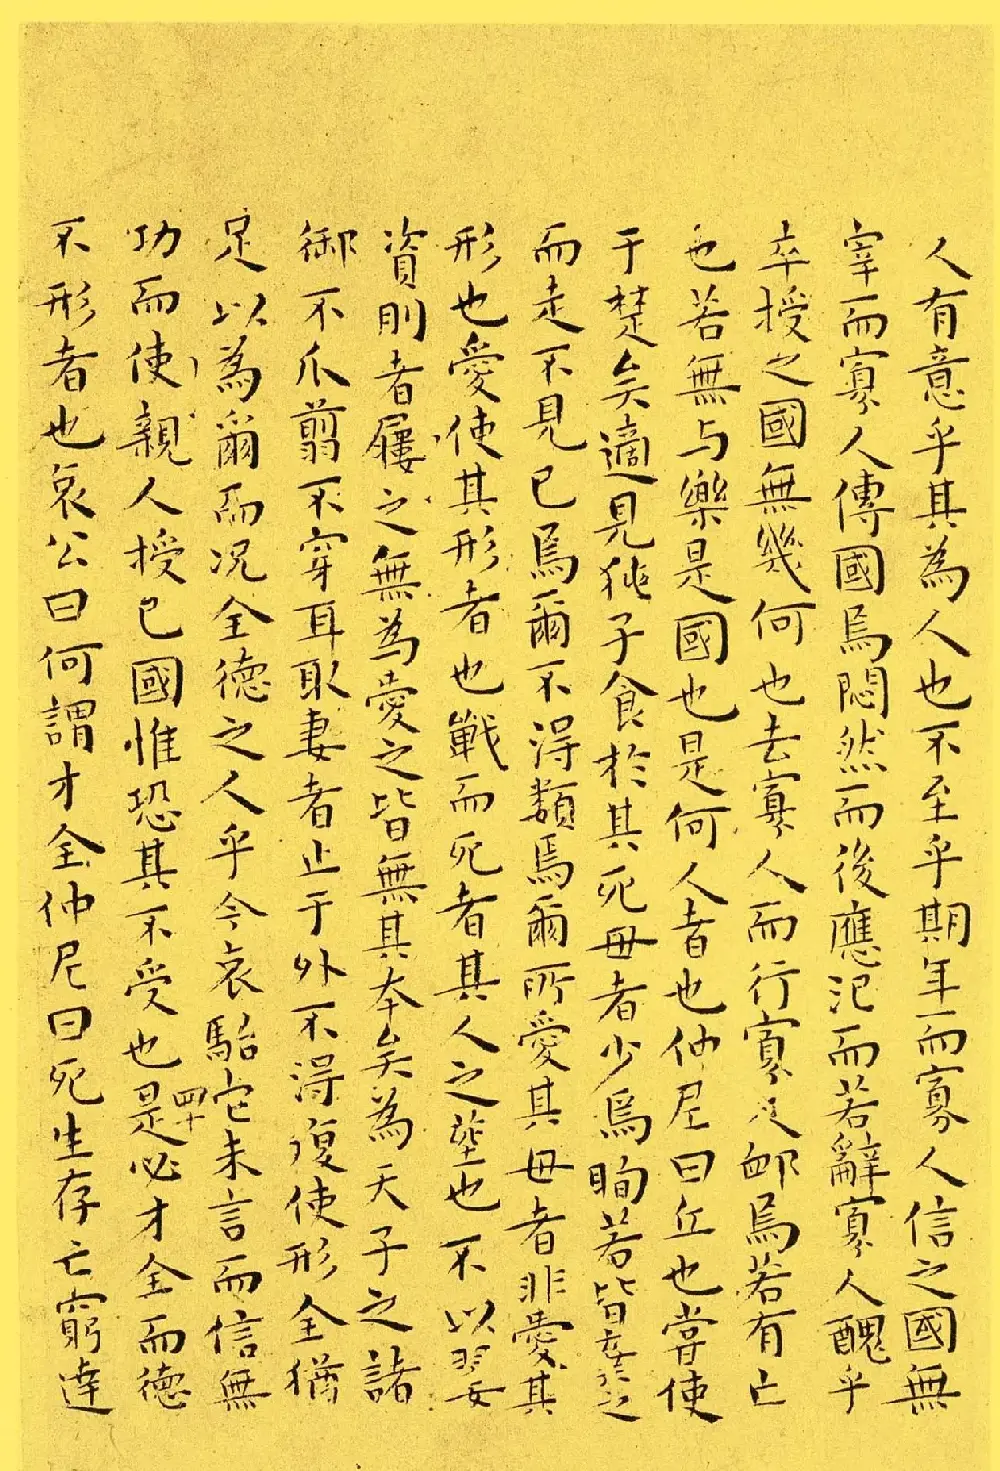 人有意乎其為人也不至乎期年而寡人信之國無
宰而寡人傳國焉悶然而後應氾而若辭寡人醜乎
卒授之國無幾何也去寡人而行寡人卹焉若有亡
也若無与樂是國也是何人者也仲尼曰丘也嘗使
于楚矣適見㹠子食於其死母者少焉眴若皆棄之
而走不見已焉爾不得類焉爾所愛其母者非愛其
形也愛使其形者也戰而死者其人之塟也不以翣
資刖者屨之無為愛之皆無其本矣為天子之諸
御不爪翦不穿耳取妻者止于外不得復使形全猶
足以為爾而況全德之人乎今哀駘它未言而信無
功而使親人授己國惟恐其不受也是必才全而德
四十
不形者也哀公曰何謂才全仲尼曰死生存亡窮達